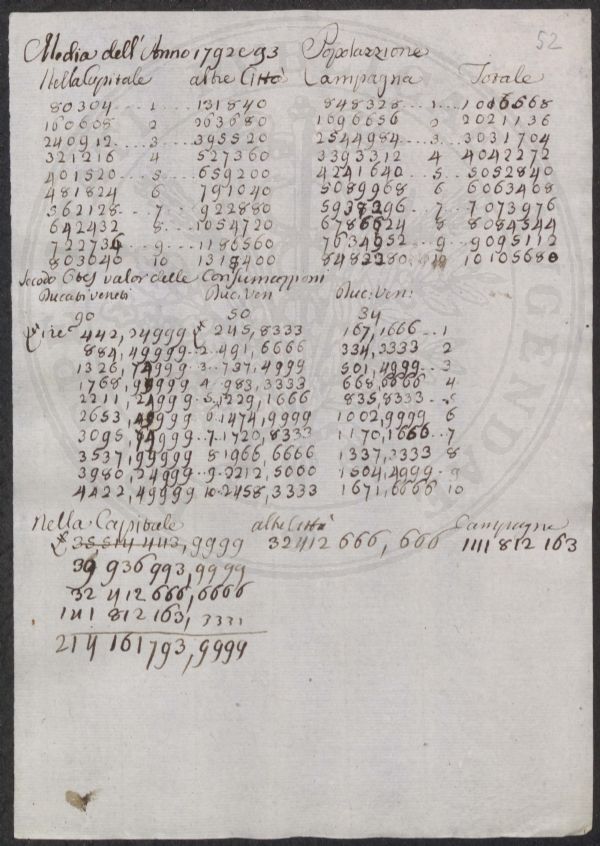 52
Media dell'Anno 1792 e 93 Popolazzione
Nella Capitale altre Città Campagna Totale
80304 1 131840 848328 1 1016568
160608 2 263680 1696656 2 2021136
240912 3 395520 2544984 3 3031704
321216 4 527360 3393312 4 4042272
401520 5 659200 4241640 5 5052840
481824 6 791040 5089968 6 6063408
562128 7 922880 5938296 7 7073976
642432 8 1054720 6786624 8 8084544
722736 9 1186560 7634952 9 9095112
803040 10 1318400 8482280 10 10105680
valor delle Consumazzioni
Ducati veneti Duc: Ven: Duc: Ven:
90 50 34
Lire 442,24999 245,8333 167,1666 1
884,49999 2 491,6666 334,3333 2
1326,74999 3 737,4999 501,4999 3
1768,99999 4 983,3333 668,6666 4
2211,24999 5 1229,1666 835,8333 5
2653,49999 6 1474,9999 1002,9999 6
3095,74999 7 1720,8333 1170,1666 7
3537,99999 8 1966,6666 1337,3333 8
3980,24999 9 2212,5000 1504,4999 9
4422,49999 10 2458,3333 1671,6666 10
Nella Capitale altre Città Campagna
35514 443,9999 32412 666,666 141 812 163
39 936 993,9999
32 412 666,6666
141 812 163,3331
214 161 793,9999